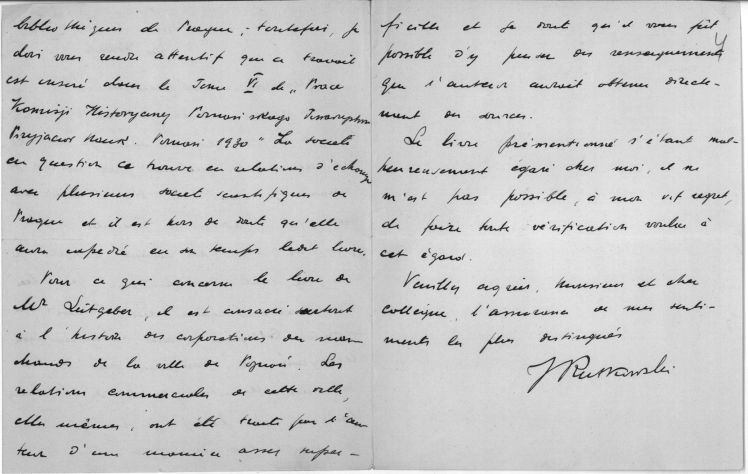 bibliothèques de Prague, toutefois, je
dois vous rendre attentif que ce travail
est inséré dans le Tome VI de „Prace
Komisji Historycznej Poznańskiego Towarzystwa
Przyjaciół Nauk. Poznań 1930" La société
en question ce trouve en relations d'échange
avec plusieurs societ scientifiques de
Prague et il est hors de doute qu'elle
aura expedié en son temps ledit livre.
Pour ce qui concerne le livre de
Mr Leitgeber, il est consacré surtout
à l'histoire des corporations des mar
chands de la ville de Poznań. Les
relations commerciales de cette ville,
elles mêmes, ont été traités par l'au
teur d'une manière assez super-
ficielle et je doute qu'il vous fût
possible d'y puiser des renseignements
que l'auteur aurait obtenu directe-
ment des sources.
Le livre présmentionné s'étant mal-
heureusement égaré chez moi, il ne
m'est pas possible, à mon vif regret,
de faire toute vérification voulue à
cet égard.
Veuillez agréer, Monsieur et cher
collègue, l'assurance de mes senti-
ments les plus distingués
J Rutkowski